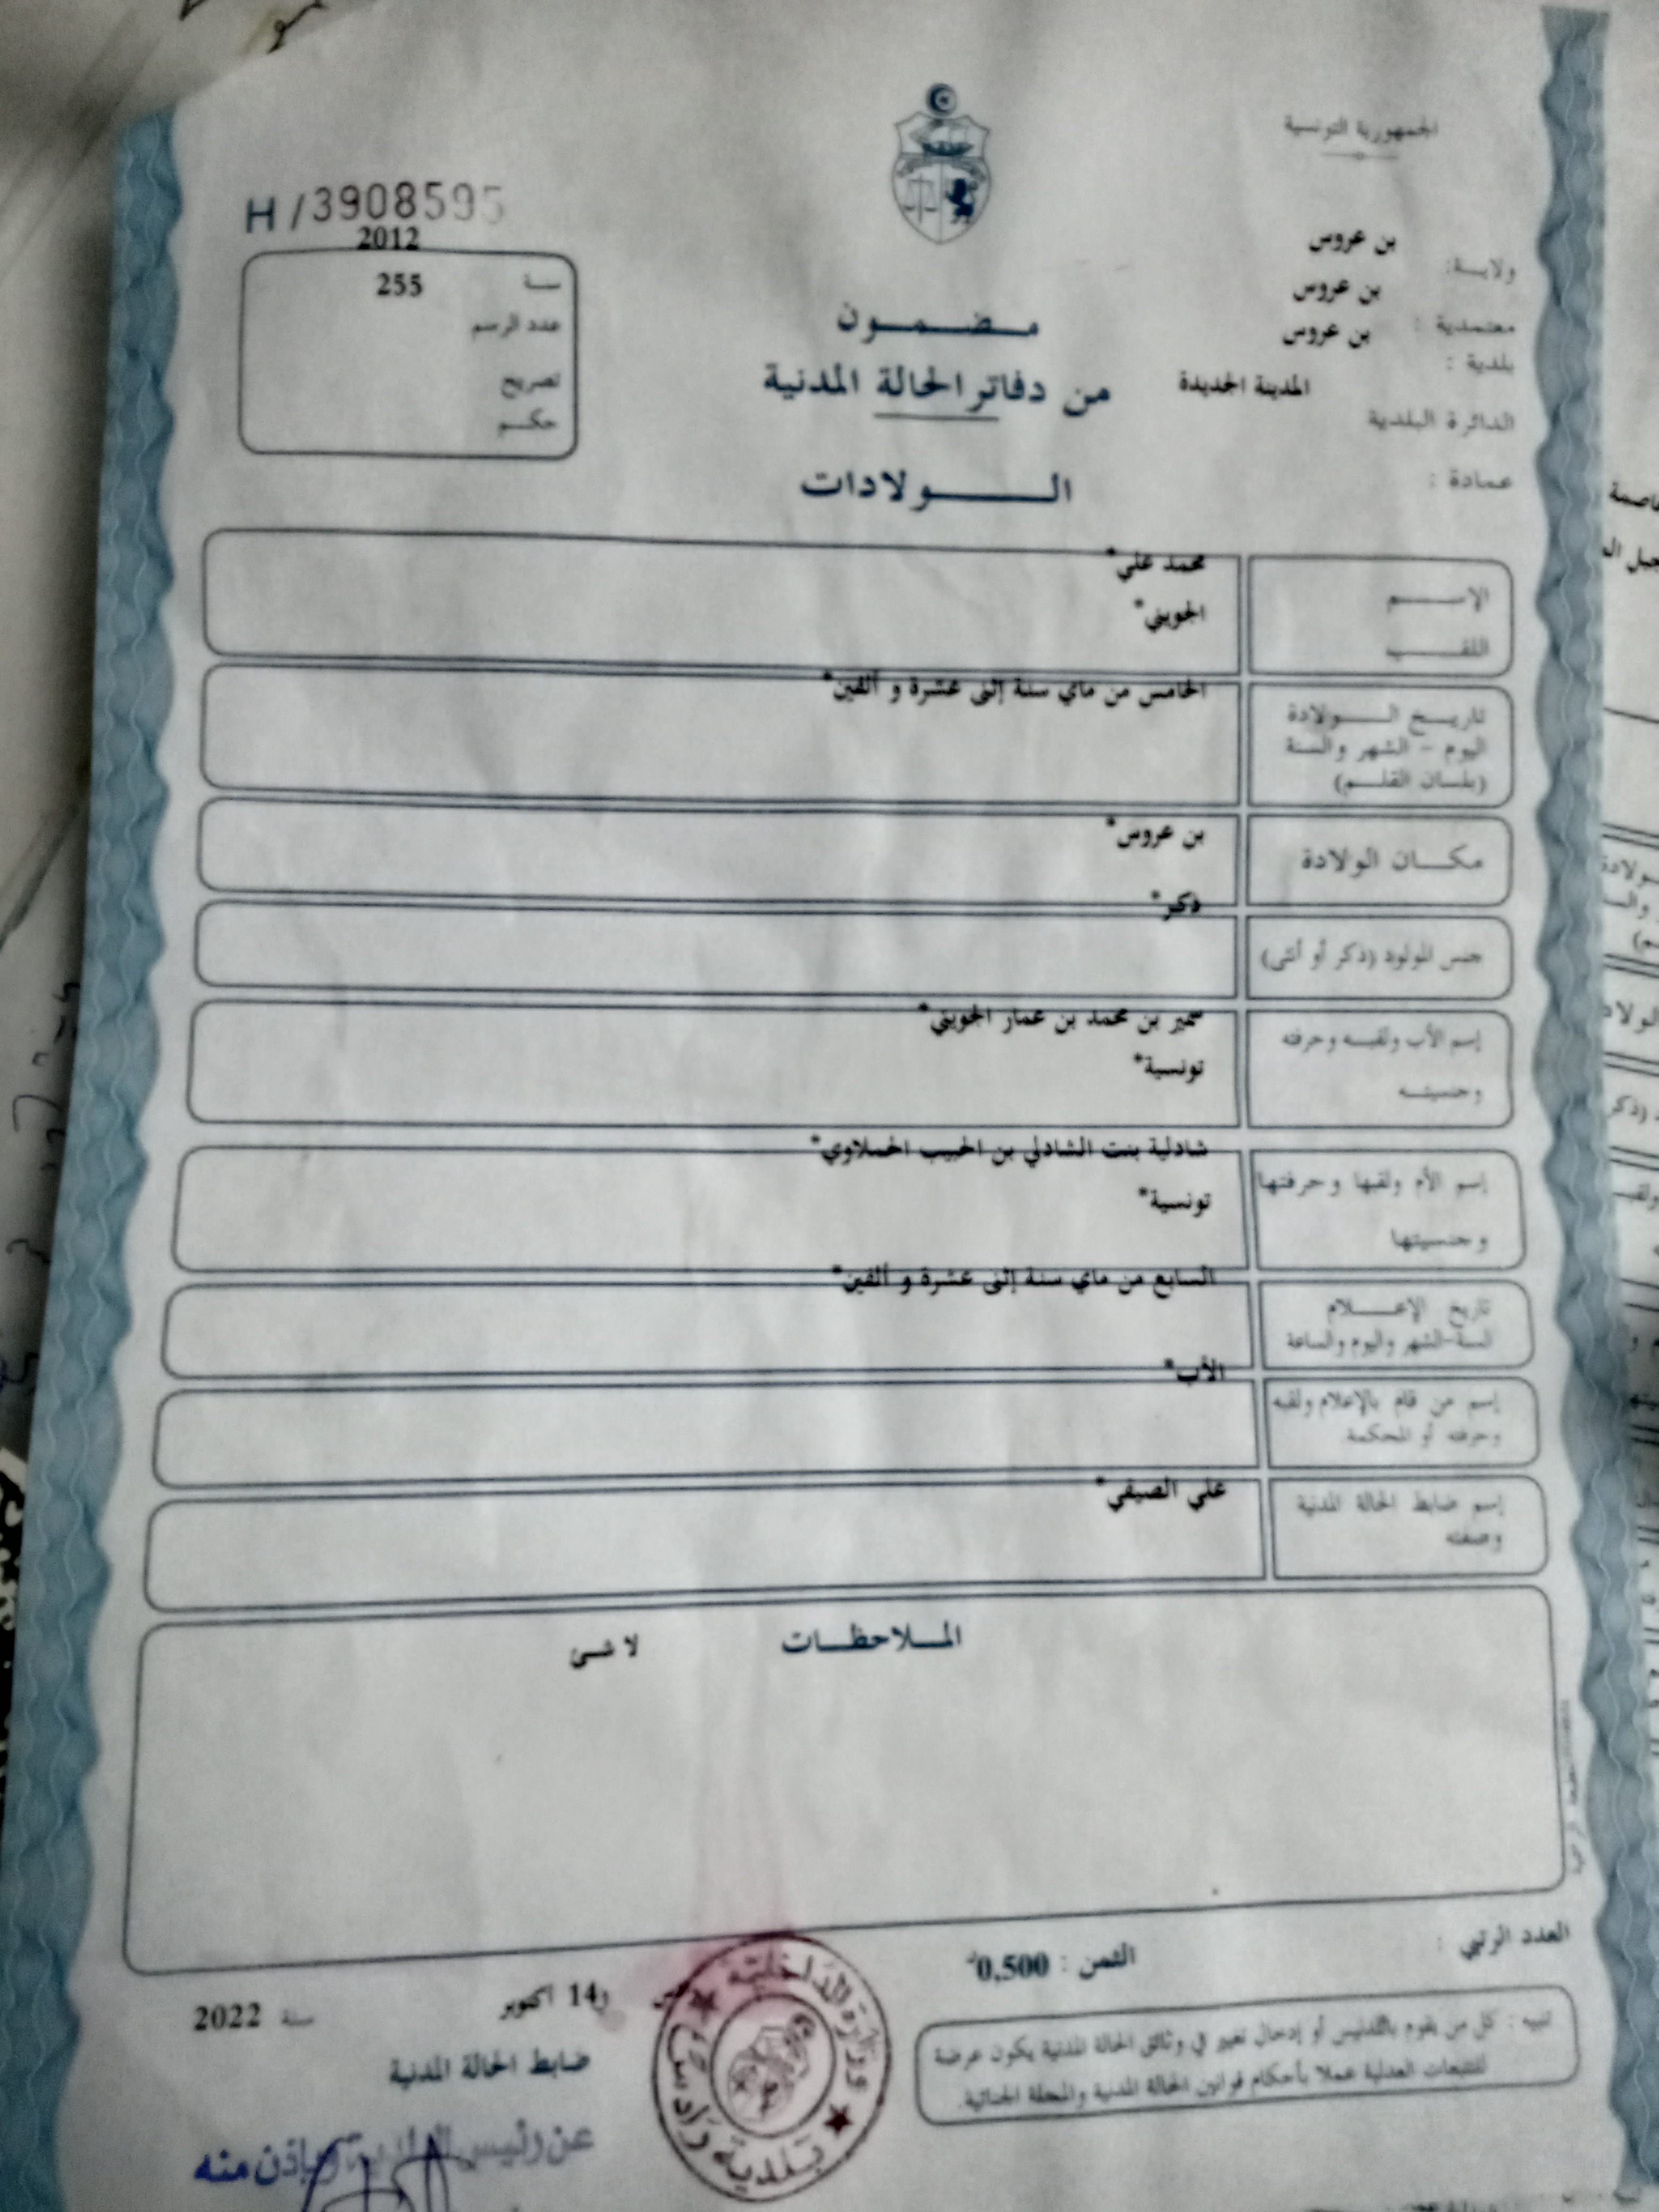 الجمهورية التونسية
H/3908595
2012
سنة 255
عدد الرسم
تصريح
حكم
بن عروس
ولاية:
بن عروس
معتمدية :
بن عروس
بلدية :
المدينة الجديدة
الدائرة البلدية
عمادة :
مضمون
من دفاتر الحالة المدنية
الولادات
الإسم
محمد علي*
اللقب
الجويني*
تاريخ الولادة
اليوم - الشهر والسنة
(بلسان القلم)
الخامس من ماي سنة إثنى عشرة و ألفين*
مكان الولادة
بن عروس*
جنس المولود (ذكر أو أنثى)
ذكر*
إسم الأب ولقبه وحرفته
وجنسيته
سمير بن محمد بن عمار الجويني*
تونسية*
إسم الأم ولقبها وحرفتها
وجنسيتها
شادلية بنت الشادلي بن الحبيب الحملاوي*
تونسية*
تاريخ الإعلام
السنة-الشهر واليوم والساعة
السابع من ماي سنة إثنى عشرة و ألفين*
إسم من قام بالإعلام ولقبه
وحرفته أو المحكمة
الأب*
إسم ضابط الحالة المدنية
وصفته
علي الصيفي*
الملاحظات
لا شئ
العدد الرتبي :
الثمن : 0,500د
14 اكتوبر سنة 2022
ضابط الحالة المدنية
تنبيه : كل من يقوم بالتدليس أو إدخال تغيير في وثائق الحالة المدنية يكون عرضة
للتتبعات العدلية عملا بأحكام قوانين الحالة المدنية والمجلة الجنائية.
وزارة الداخلية
بلدية رادس
عن رئيس البلدية وبإذن منه